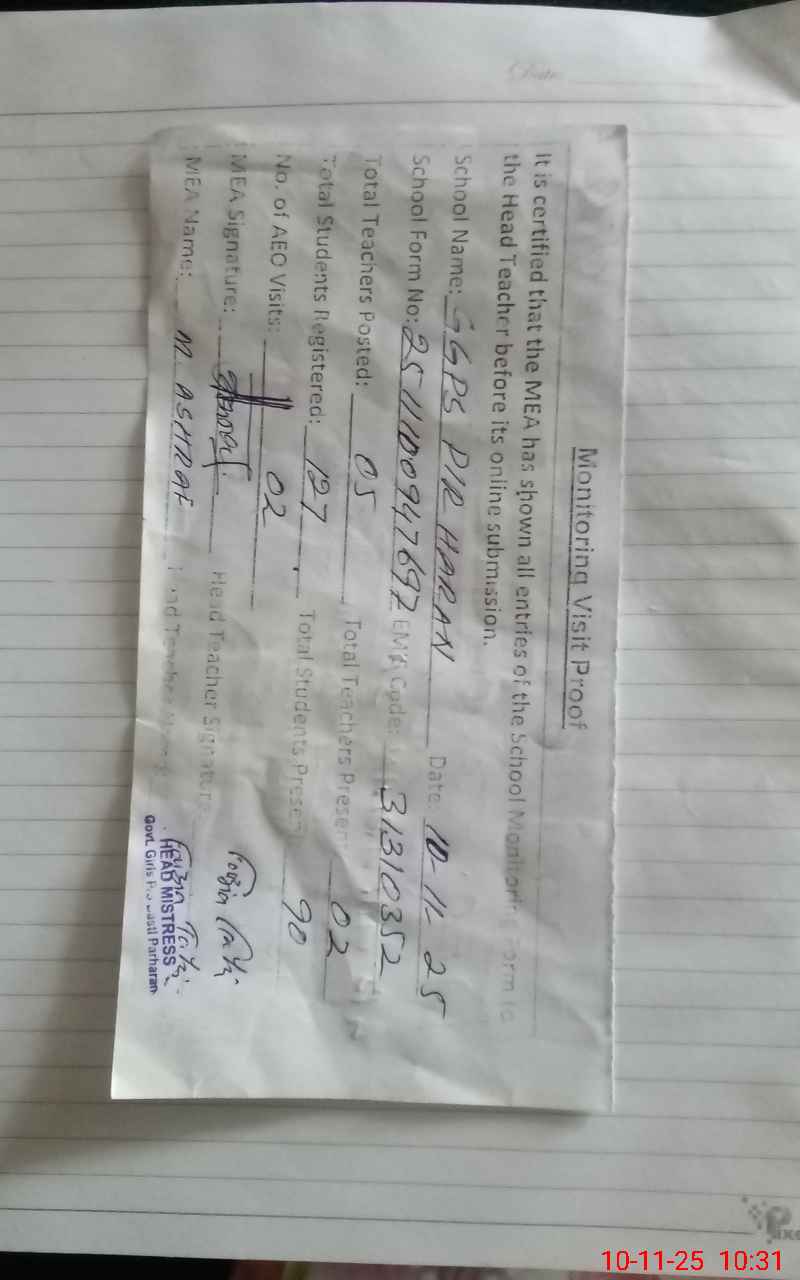 Date:
Monitoring Visit Proof
It is certified that the MEA has shown all entries of the School Monitoring Form to
the Head Teacher before its online submission.
School Name: GGPS PIR HARAN Date: 10-11-25
School Form No: 2511100947697 EMIS Code: 31310352
Total Teachers Posted: 05 Total Teachers Present 02
Total Students Registered: 127 Total Students Present 90
No. of AEO Visits: 02
MEA Signature: Head Teacher Signature
MEA Name: M. ASHRAF Head Teacher Name
HEAD MISTRESS
Govt. Girls P/S Basti Parharan
10-11-25 10:31